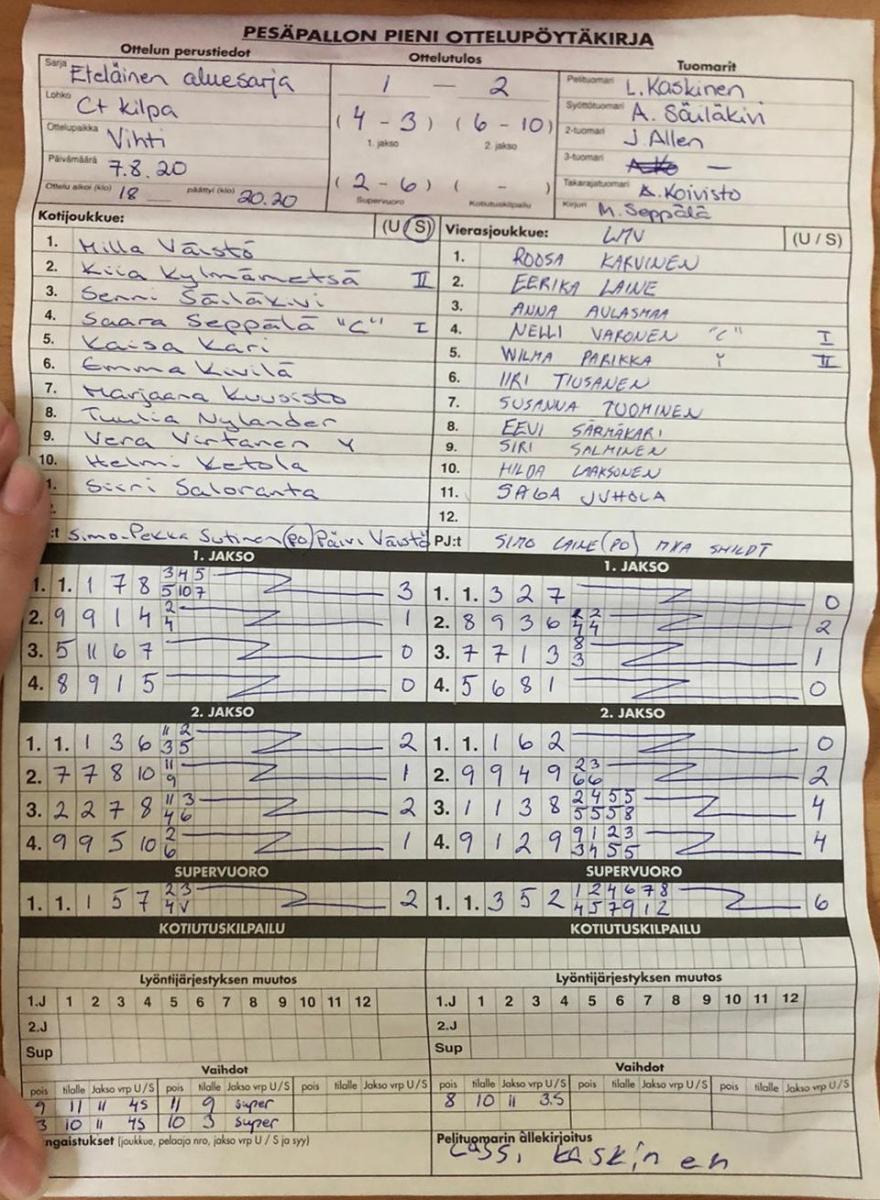 PESÄPALLON PIENI OTTELUPÖYTÄKIRJA
Ottelun perustiedot Ottelutulos Tuomarit
Sarja Eteläinen aluesarja 1 — 2 Pelituomari L. Kaskinen
Lohko C+ kilpa (4 - 3) (6 - 10) Syöttötuomari A. Säiläkivi
1. jakso 2. jakso
Ottelupaikka Vihti 2-tuomari J. Allen
Päivämäärä 7.8.20 3-tuomari —
Ottelu alkoi (klo) 18 päättyi (klo) 20.20 (2 - 6) ( - ) Takarajatuomari A. Koivisto
Supervuoro Kotiutuskilpailu Kirjuri M. Seppälä
Kotijoukkue: (U/S) Vierasjoukkue: LMV (U / S)
1. Milla Väistö 1. ROOSA KARVINEN
2. Kiia Kylmämetsä II 2. EERIKA LAINE
3. Senni Säiläkivi 3. ANNA AULASMAA
4. Saara Seppälä "C" I 4. NELLI VARONEN "C" I
5. Kaisa Kari 5. WILMA PARIKKA Y II
6. Emma Kivilä 6. IIRI TIUSANEN
7. Marjaana Kuusisto 7. SUSANNA TUOMINEN
8. Tuulia Nylander 8. EEVI SÄRMÄKARI
9. Vera Virtanen Y 9. SIRI SALMINEN
10. Helmi Ketola 10. HILDA LAAKSONEN
1. Siiri Saloranta 11. SAGA JUHOLA
12.
:t Simo-Pekka Sutinen (PO) Päivi Väistö PJ:t SIMO LAINE (PO) SMILDT
1. JAKSO 1. JAKSO
1. 1. 1 7 8 3 4 5 3 1. 1. 3 2 7 0
5 10 7
2. 9 9 1 4 2 1 2. 8 9 3 6 2 2
4 4 4
3. 5 11 6 7 0 3. 7 7 1 3 8 1
3
4. 8 9 1 5 0 4. 5 6 8 1 0
2. JAKSO 2. JAKSO
1. 1. 1 3 6 11 2 2 1. 1. 1 6 2 0
3 5
2. 7 7 8 10 11 1 2. 9 9 4 9 2 3 2
9 6 6
3. 2 2 7 8 11 3 2 3. 1 1 3 8 2 4 5 5 4
4 6 5 5 5 8
4. 9 9 5 10 2 1 4. 9 1 2 9 9 1 2 3 4
6 3 4 5 5
SUPERVUORO SUPERVUORO
1. 1. 1 5 7 2 3 2 1. 1. 3 5 2 1 2 4 6 7 8 6
4 V 4 5 7 9 1 2
KOTIUTUSKILPAILU KOTIUTUSKILPAILU
Lyöntijärjestyksen muutos Lyöntijärjestyksen muutos
1.J 1 2 3 4 5 6 7 8 9 10 11 12 1.J 1 2 3 4 5 6 7 8 9 10 11 12
2.J 2.J
Sup Sup
Vaihdot Vaihdot
pois tilalle Jakso vrp U/S pois tilalle Jakso vrp U/S pois tilalle pois tilalle Jakso vrp U/S pois tilalle Jakso vrp U/S pois tilalle Jakso vrp U/S
9 11 11 4S 11 9 super 8 10 11 3.S
3 10 11 4S 10 3 super
ngaistukset (joukkue, pelaaja nro, jakso vrp U / S ja syy) Pelituomarin allekirjoitus
Lassi Kaskinen